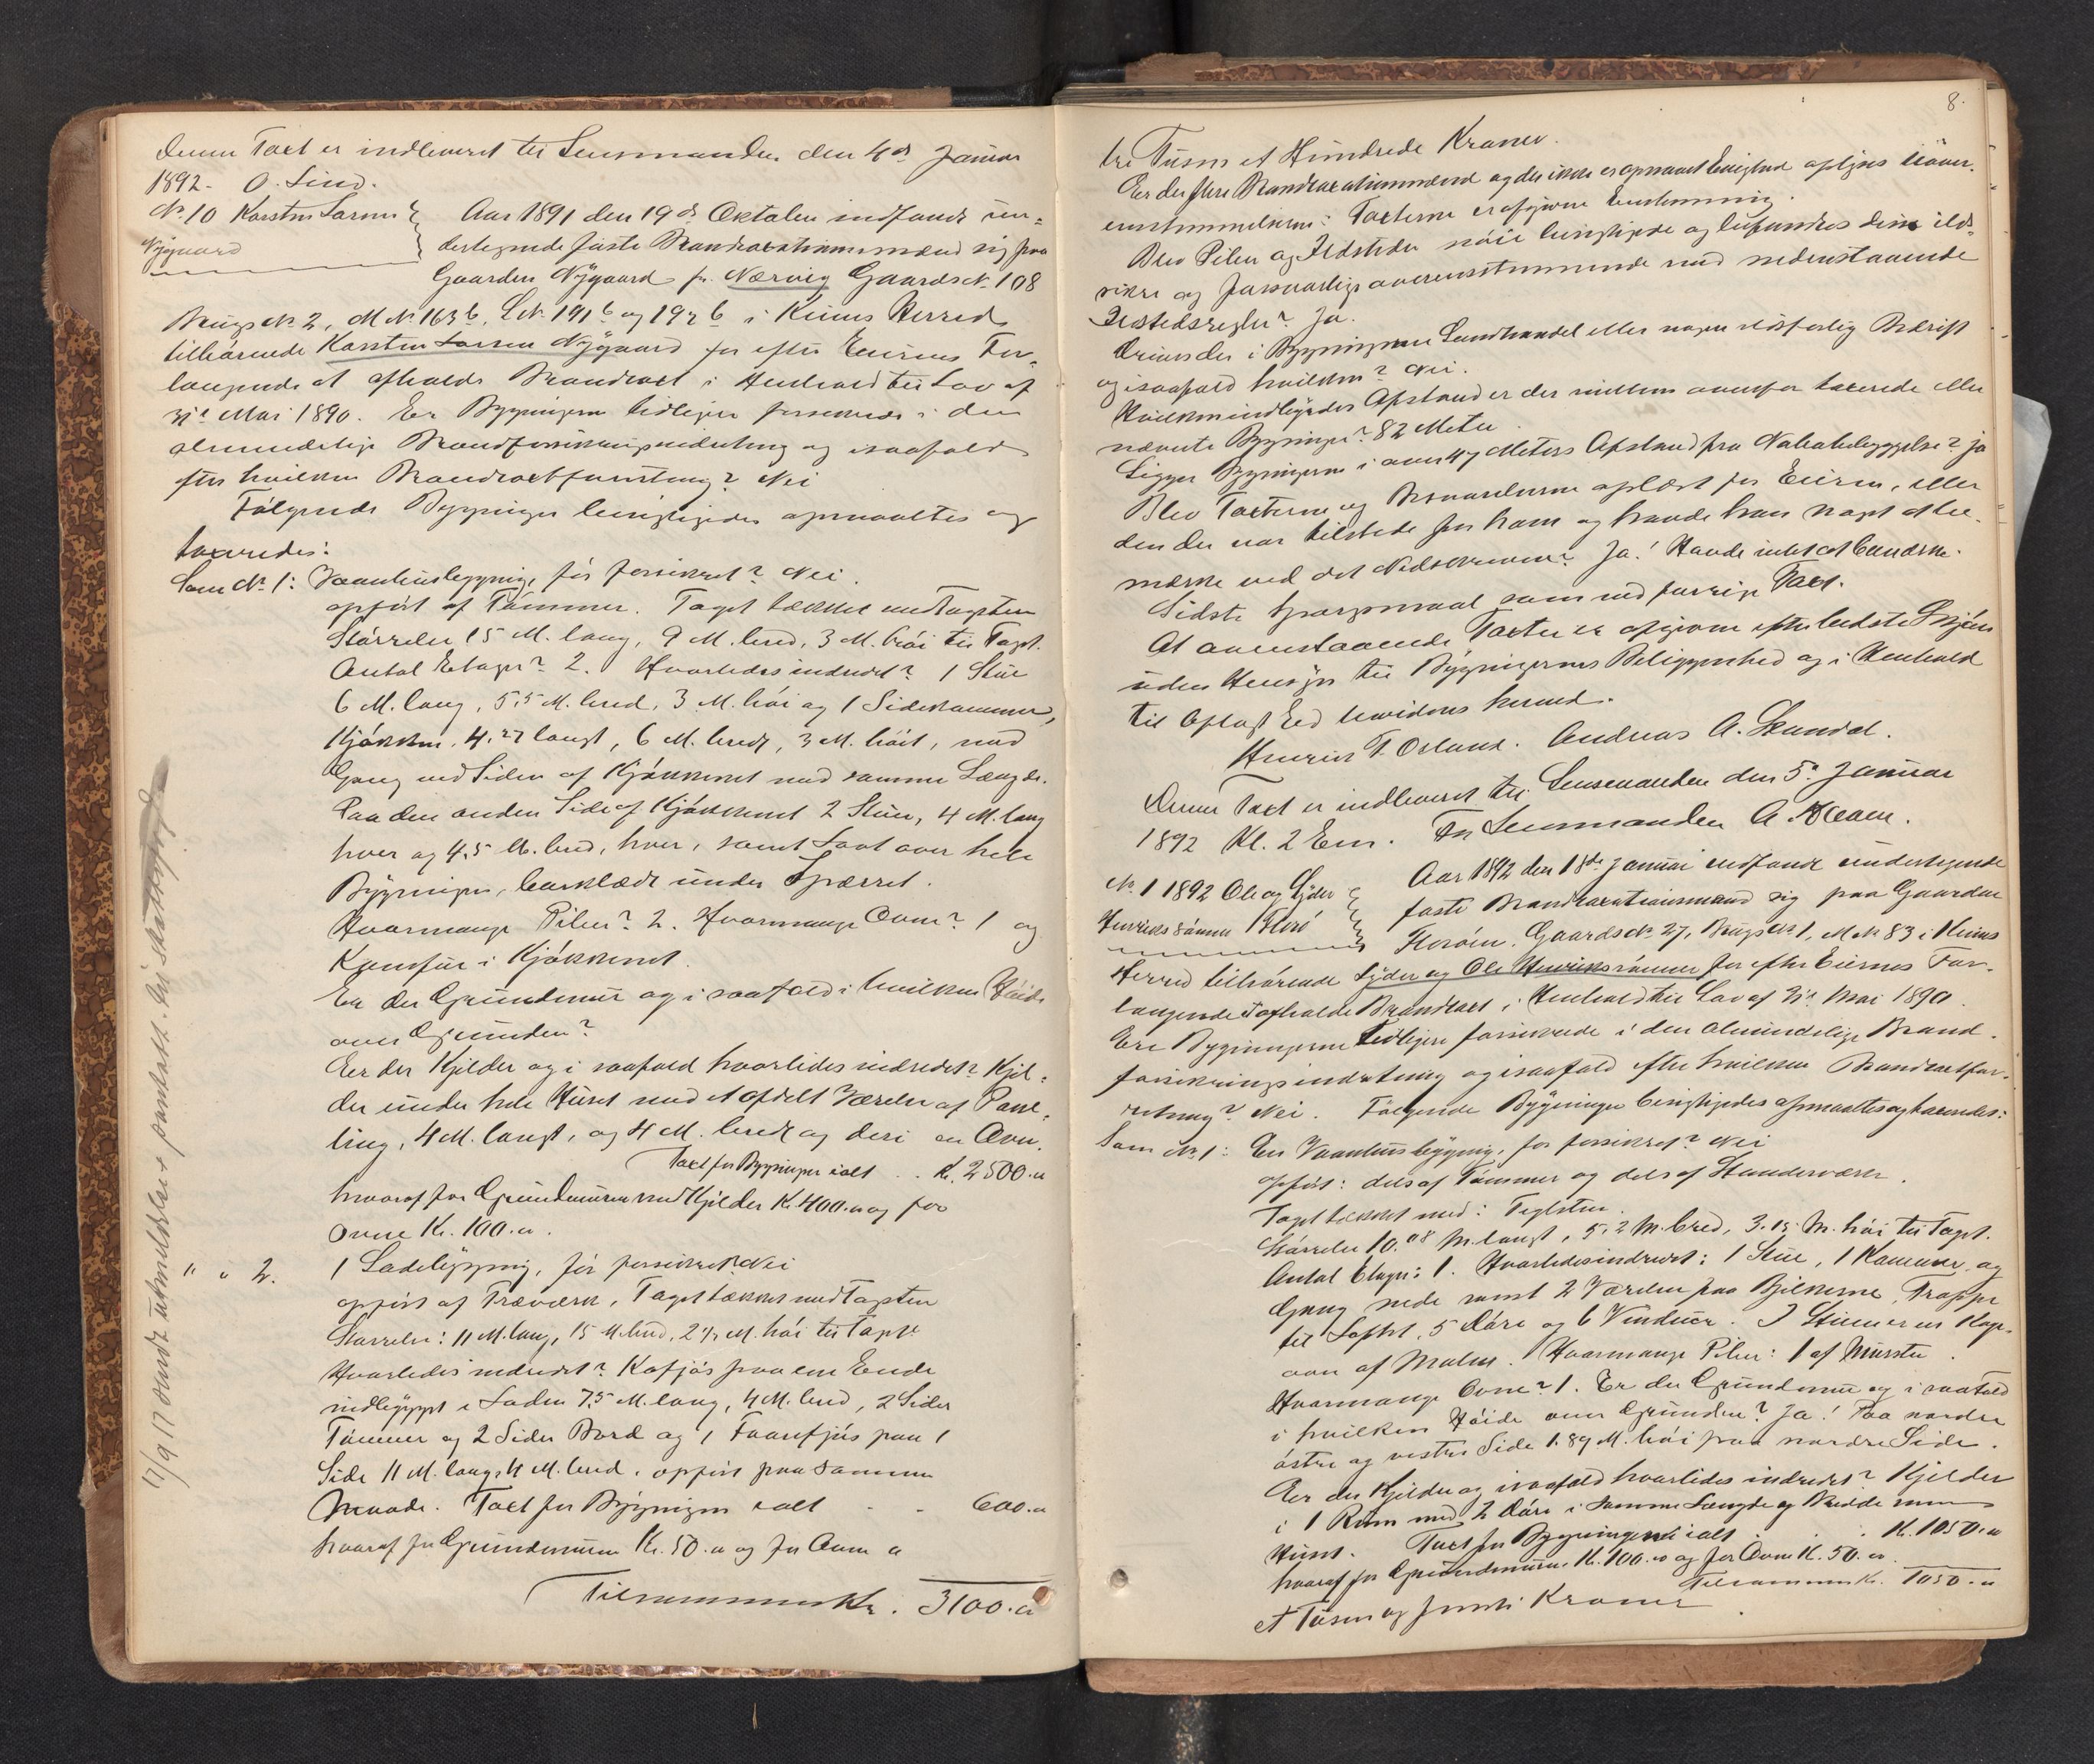 Denne Taxt er indleveret til Lensmanden den 4de Januar
1892. O. Lind.
No 10 Karsten Larsen
Nygaard
Aar 1891 den 19de Oktober indfandt un-
dertegnede faste Brandtaxationsmænd sig paa
Gaarden Nÿgaard fr. Nærvig Gaards No 108
Brugs No 2, M No 163b, L No 191b og 192b i Kinns Herred
tilhørende Karsten Larsen Nÿgaard for efter Eierens For-
langende at afholde Brandtaxt i Henhold til Lov af
31te Mai 1890. Er Bygningerne tidligere forsikrede i den
almindelige Brandforsikringsindretning og isaafald
efter hvilken Brandtaxtforretning? Nei
Følgende Bygninger besigtigedes opmaaltes og
taxeredes:
Som No 1: Vaanhusbygning, før forsikret? Nei.
opført af Tømmer. Taget tækket med Tagsten
Størrelse 15 M. lang, 9 M. bred, 3 M. høi til Taget.
Antal Etager? 2. Hvorledes indredet? 1 Stue
6 M. lang, 5,5 M. bred, 3 M. høi og 1 Sidekammer,
Kjøkken, 4,27 langt, 6 M. bredt, 3 M. høit, med
Gang ved Siden af Kjøkkenet med samme Længde.
Paa den anden Side af Kjøkkenet 2 Stuer, 4 M. lang
hver og 4,5 M. bred, hver, samt Loft over hele
Bÿgningen, bordklædt under Spærret.
Hvormange Piber? 2. Hvormange Ovne? 1 og
Komfur i Kjøkkenet.
Er der Grundmur og i saafald i hvilken Høide
over Grunden?
Er der Kjelder og i saafald hvorledes indredet? Kjel-
der under hele Huset med et afdelt Værelse af Pane-
ling, 4 M. langt, og 4 M. bredt og deri en Ovn.
Taxt for Bygningen ialt . . Kr. 2500.00
hvoraf for Grundmuren med Kjelder Kr. 400.00 og for
Ovne Kr. 100.00.
" " 2. 1 Ladebÿgning, før forsikret? Nei
opført af Træværk, Taget tækket med Tagsten
Størrelse: 11 M. lang, 15 M. bred, 2 1/2 M. høi til Taget
Hvorledes indredet? Kofjøs paa ene Ende
indbÿgget i Laden 7,5 M. lang, 4 M. bred, 2 Sider
Tømmer og 2 Sider Bord og 1 Faarefjøs paa 1
Side 11 M. lang, 4 M. bred, opført paa samme
Maade. Taxt for Bÿgningen ialt - - 600.00
hvoraf for Grundmuren Kr. 50.00 og for Ovne 0
Tilsammen Kr. 3100.00
17/9 17 sendt utmeldelse + pantatt. til skattefogd
8.
tre Tusen et Hundrede Kroner.
Er der flere Brandtaxationsmænd og der ikke er opnaaet Enighed oplyses Uover-
enstemmelsen: Taxterne er afgivne
Blev Piber og Ildsteder nøie besigtigede og befundtes disse ild-
sikre og forsvarlige overensstemmende med nedenstaaende
Ildstedsregler? Ja.
Drives der i Bygningerne Landhandel eller nogen ildsfarlig Bedrift
og isaafald hvilken? Nei.
Hvilken indbÿrdes Afstand er der mellem ovenfor taxerede eller
nævnte Bygninger? 82 Meter.
Ligger Bygningerne i over 47 Meters Afstand fra Nabobebyggelse? Ja
Blev Taxterne og Besvarelserne oplæst for Eieren, eller
den der var tilstede for ham og havde han noget at be-
mærke ved det Nedskrevne? Ja! Havde intet at bemærke.
Sidste Spørgsmaal som ved forrige Taxt.
At ovenstaaende Taxter er afgivne efter bedste Skjøn
uden Hensÿn til Bÿgningernes Beliggenhed og i Henhold
til aflagt Ed bevidnes herved.
Henrik T. Osland. Andreas A. Standal.
Denne Taxt er indleveret til Lensmanden den 5. Januar
1892 Kl. 2 Em. For Lensmanden A.
No 1 1892 Ole og Lÿder
Henrikssønner Florø
Aar 1892 den 18de Januar indfandt undertegnede
faste Brandtaxationsmænd sig paa Gaarden
Florøen, Gaards No 27, Brugs No 1, M No 83 i Kinns
Herred tilhørende Lÿder og Ole Henrikssønner for efter Eiernes For-
langende at afholde Brandtaxt i Henhold til Lov af 31te Mai 1890.
Ere Bygningerne tidligere forsikrede i den almindelige Brand-
forsikringsindretning og isaafald efter hvilken Brandtaxtfor-
retning? Nei. Følgende Bÿgninger besigtigedes opmaaltes og taxeredes:
Som No 1: En Vaanhusbÿgning, før forsikret? Nei
opført: dels af Tømmer og dels af Stenderværk.
Taget tækket med: Teglsten.
Størrelse 10.08 M. langt, 5,2 M. bred, 3.15 M. høi til Taget.
Antal Etager: 1. Hvorledes indredet: 1 Stue, 1 Kammer og
Gang nede samt 2 Værelser paa Bjelkerne, Trappe
til Loftet, 5 Døre og 6 Vinduer. I Stuen er en Kage-
ovn af Malm. Hvormange Piber: 1 af Mursten.
Hvormange Ovne? 1. Er der Grundmur og i saafald
i hvilken Høide over Grunden? Ja! Paa nordre
østre og vestre Side 1.89 M. høi paa nordre Side.
Er der Kjelder og isaafald hvorledes indredet? Kjelder
i 1 Rum med 2 Døre i samme Længde og Bredde som
Huset. Taxt for Bÿgningen ialt . . . Kr. 1050.00
hvoraf for Grundmuren Kr. 100.00 og for Ovne Kr. 50.00.
Tilsammen Kr. 1050.00
et Tusen og femti Kroner